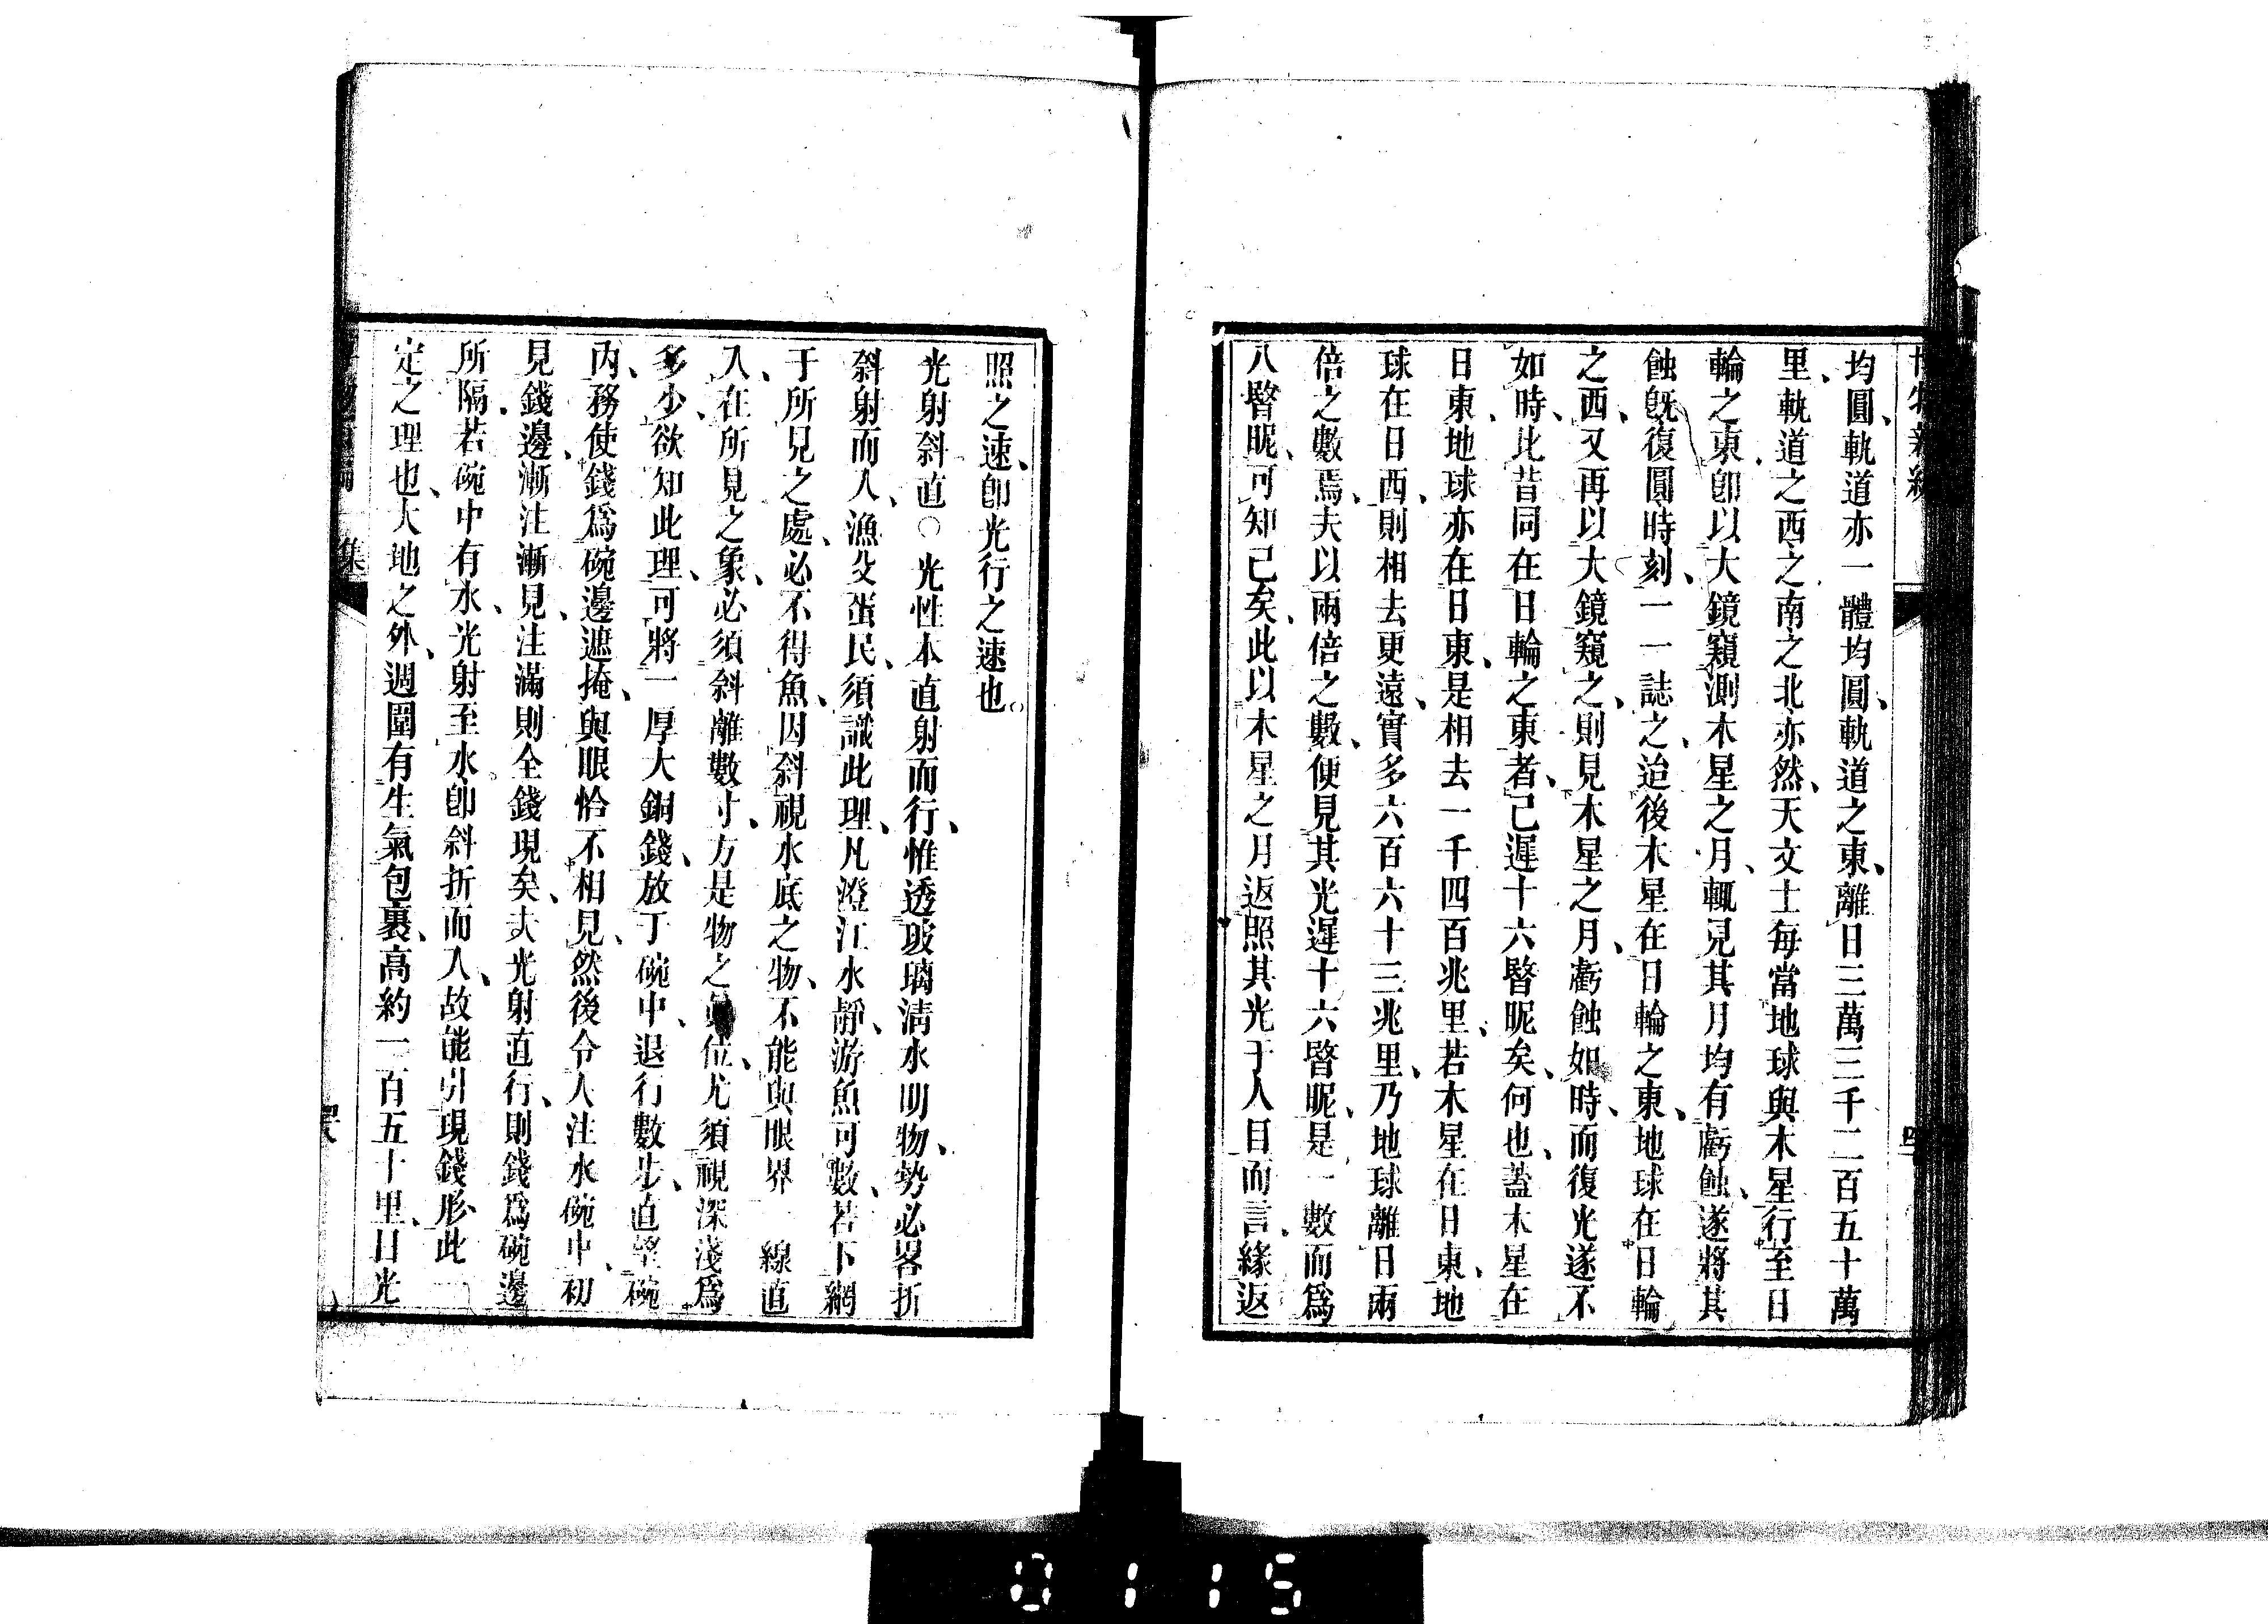 博物新編
均圓、軌道亦一體均圓、軌道之東、離日三萬三千二百五十萬
里、軌道之西之南之北亦然、天文士每當地球與木星行至日
輪之東、卽以大鏡窺測木星之月、輒見其月均有虧蝕、遂將其
蝕旣復圓時刻、一一誌之、迨後木星在日輪之東、地球在日輪
之西、又再以大鏡窺之、則見木星之月、虧蝕如時、而復光遂不
如時、比昔同在日輪之東者、已遲十六瞖昵矣、何也、蓋木星在
日東、地球亦在日東、是相去一千四百兆里、若木星在日東、地
球在日西、則相去更遠、實多六百六十三兆里、乃地球離日兩
倍之數焉、夫以兩倍之數、便見其光遲十六瞖昵、是一數而爲
八瞖昵、可知已矣、此以木星之月返照其光于人目而言、緣返
照之速、卽光行之速也。
光射斜直○光性本直射而行、惟透玻璃淸水明物、勢必畧折
斜射而入、漁父疍民、須識此理、凡澄江水靜、游魚可數、若下網
于所見之處、必不得魚、因斜視水底之物、不能與眼界一線直
入、在所見之象、必須斜離數寸、方是物之眞位、尤須視深淺爲
多少、欲知此理、可將一厚大銅錢、放于碗中、退行數步、直望碗
內、務使錢爲碗邊遮掩、與眼恰不相見、然後令人注水碗中、初
見錢邊、漸注漸見、注滿則全錢現矣、夫光射直行、則錢爲碗邊
所隔、若碗中有水、光射至水、卽斜折而入、故能引現錢形、此一
定之理也、大地之外、週圍有生氣包裹、高約一百五十里、日光
集
0115